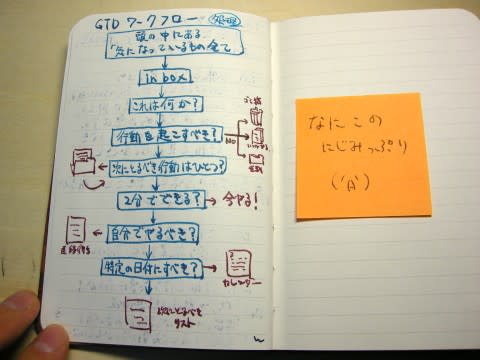 GTD ワークフロー 処理
頭の中にある
「気になっているもの全て
in box
これは何か?
行動を起こすべき?
NO
ゴミ箱
次にとるべき行動はひとつ?
2分でできる?
今やる!
自分でやるべき?
特定の日付にすべき?
カレンダー
次にとるべき
リスト
なにこの
にじみっぷり
('A`)